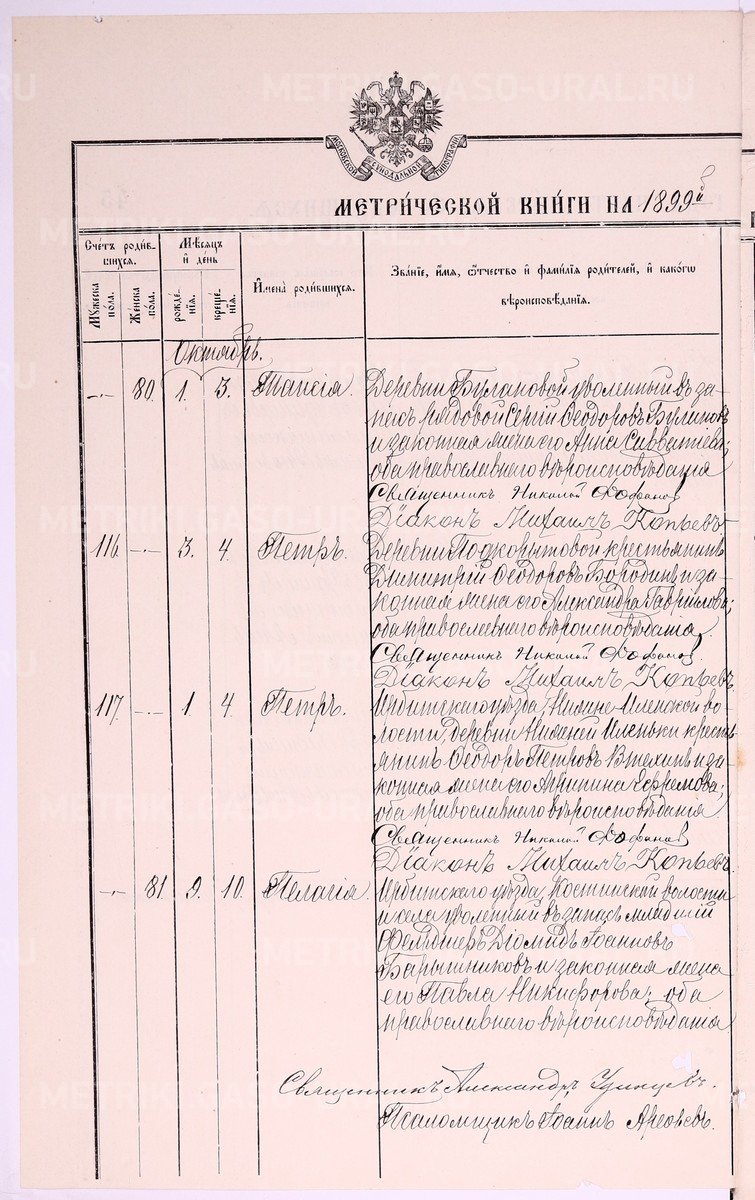 МОСКОВСКОЙ СѴНОДАЛЬНОЙ ТИПОГРАФІИ
МЕТРИ́ЧЕСКОЙ КНИ́ГИ НА 1899й
Сче́тъ роди́вшихся.
Мѣ́сяцъ и҆ де́нь
И҆мена̀ роди́вшихся.
Зва́нїе, и҆́мѧ, ѻ҆́тчество и҆ фами́лїѧ роди́телей, и҆ како́гѡ
вѣроисповѣ́данїѧ.
Мꙋжеска по́ла.
Же́нска по́ла.
рожде́нїѧ.
креще́нїѧ.
Октябрь.
-·- 80. 1. 3. Таисія. Деревни Булановой уволенный въ за-
пасъ рядовой Сергій Ѳеодоровъ Булановъ
и законная жена его Анна Савватіева;
оба православнаго вѣроисповѣданія
Священникъ Николай Фофановъ
Діаконъ Михаилъ Копьевъ
116. -·- 3. 4. Петръ. Деревни Подкорытовой крестьянинъ
Димитрій Ѳеодоровъ Бородинъ и за-
конная жена его Александра Гавриилова;
оба православнаго вѣроисповѣданія.
Священникъ Николай Фофановъ
Діаконъ Михаилъ Копьевъ
117. -·- 1. 4. Петръ. Ирбитскаго уѣзда, Нижне-Иленской во-
лости, деревни Нижней Иленьки кресть-
янинъ Ѳеодоръ Петровъ Втехинъ и за-
конная жена его Агрипина Ефремова;
оба православнаго вѣроисповѣданія.
Священникъ Николай Фофановъ
Діаконъ Михаилъ Копьевъ.
-·- 81. 9. 10. Пелагія. Ирбитскаго уѣзда, Костинской волости
и села уволенный въ запасъ младшій
фельдшеръ Діомидъ Іоанновъ
Барышниковъ и законная жена
его Павла Никифорова; оба
православнаго вѣроисповѣданія
Священникъ Александръ Удинцевъ.
Псаломщикъ Іоаннъ Арефьевъ.
METRIKI.GASO-URAL.RU